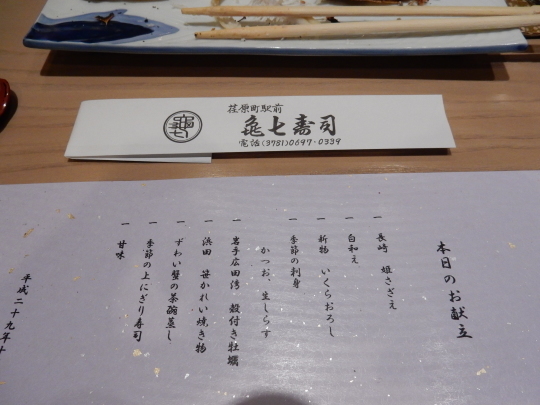 荏原町駅前
亀七寿司
電話(3781)0697・0339
本日のお献立
一 長崎 姫さざえ
一 白和え
一 新物 いくらおろし
一 季節の刺身
かつお、生しらす
一 岩手広田湾 殻付き牡蠣
一 浜田 笹かれい焼き物
一 ずわい蟹の茶碗蒸し
一 季節の上にぎり寿司
一 甘味
平成二十九年十